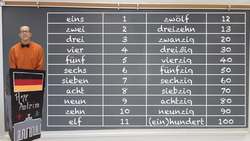 eins 1 zwölf 12
zwei 2 dreizehn 13
drei 3 zwanzig 20
vier 4 dreißig 30
fünf 5 vierzig 40
sechs 6 fünfzig 50
sieben 7 sechzig 60
acht 8 siebzig 70
neun 9 achtzig 80
zehn 10 neunzig 90
elf 11 (ein)hundert 100
Herr
Antrim